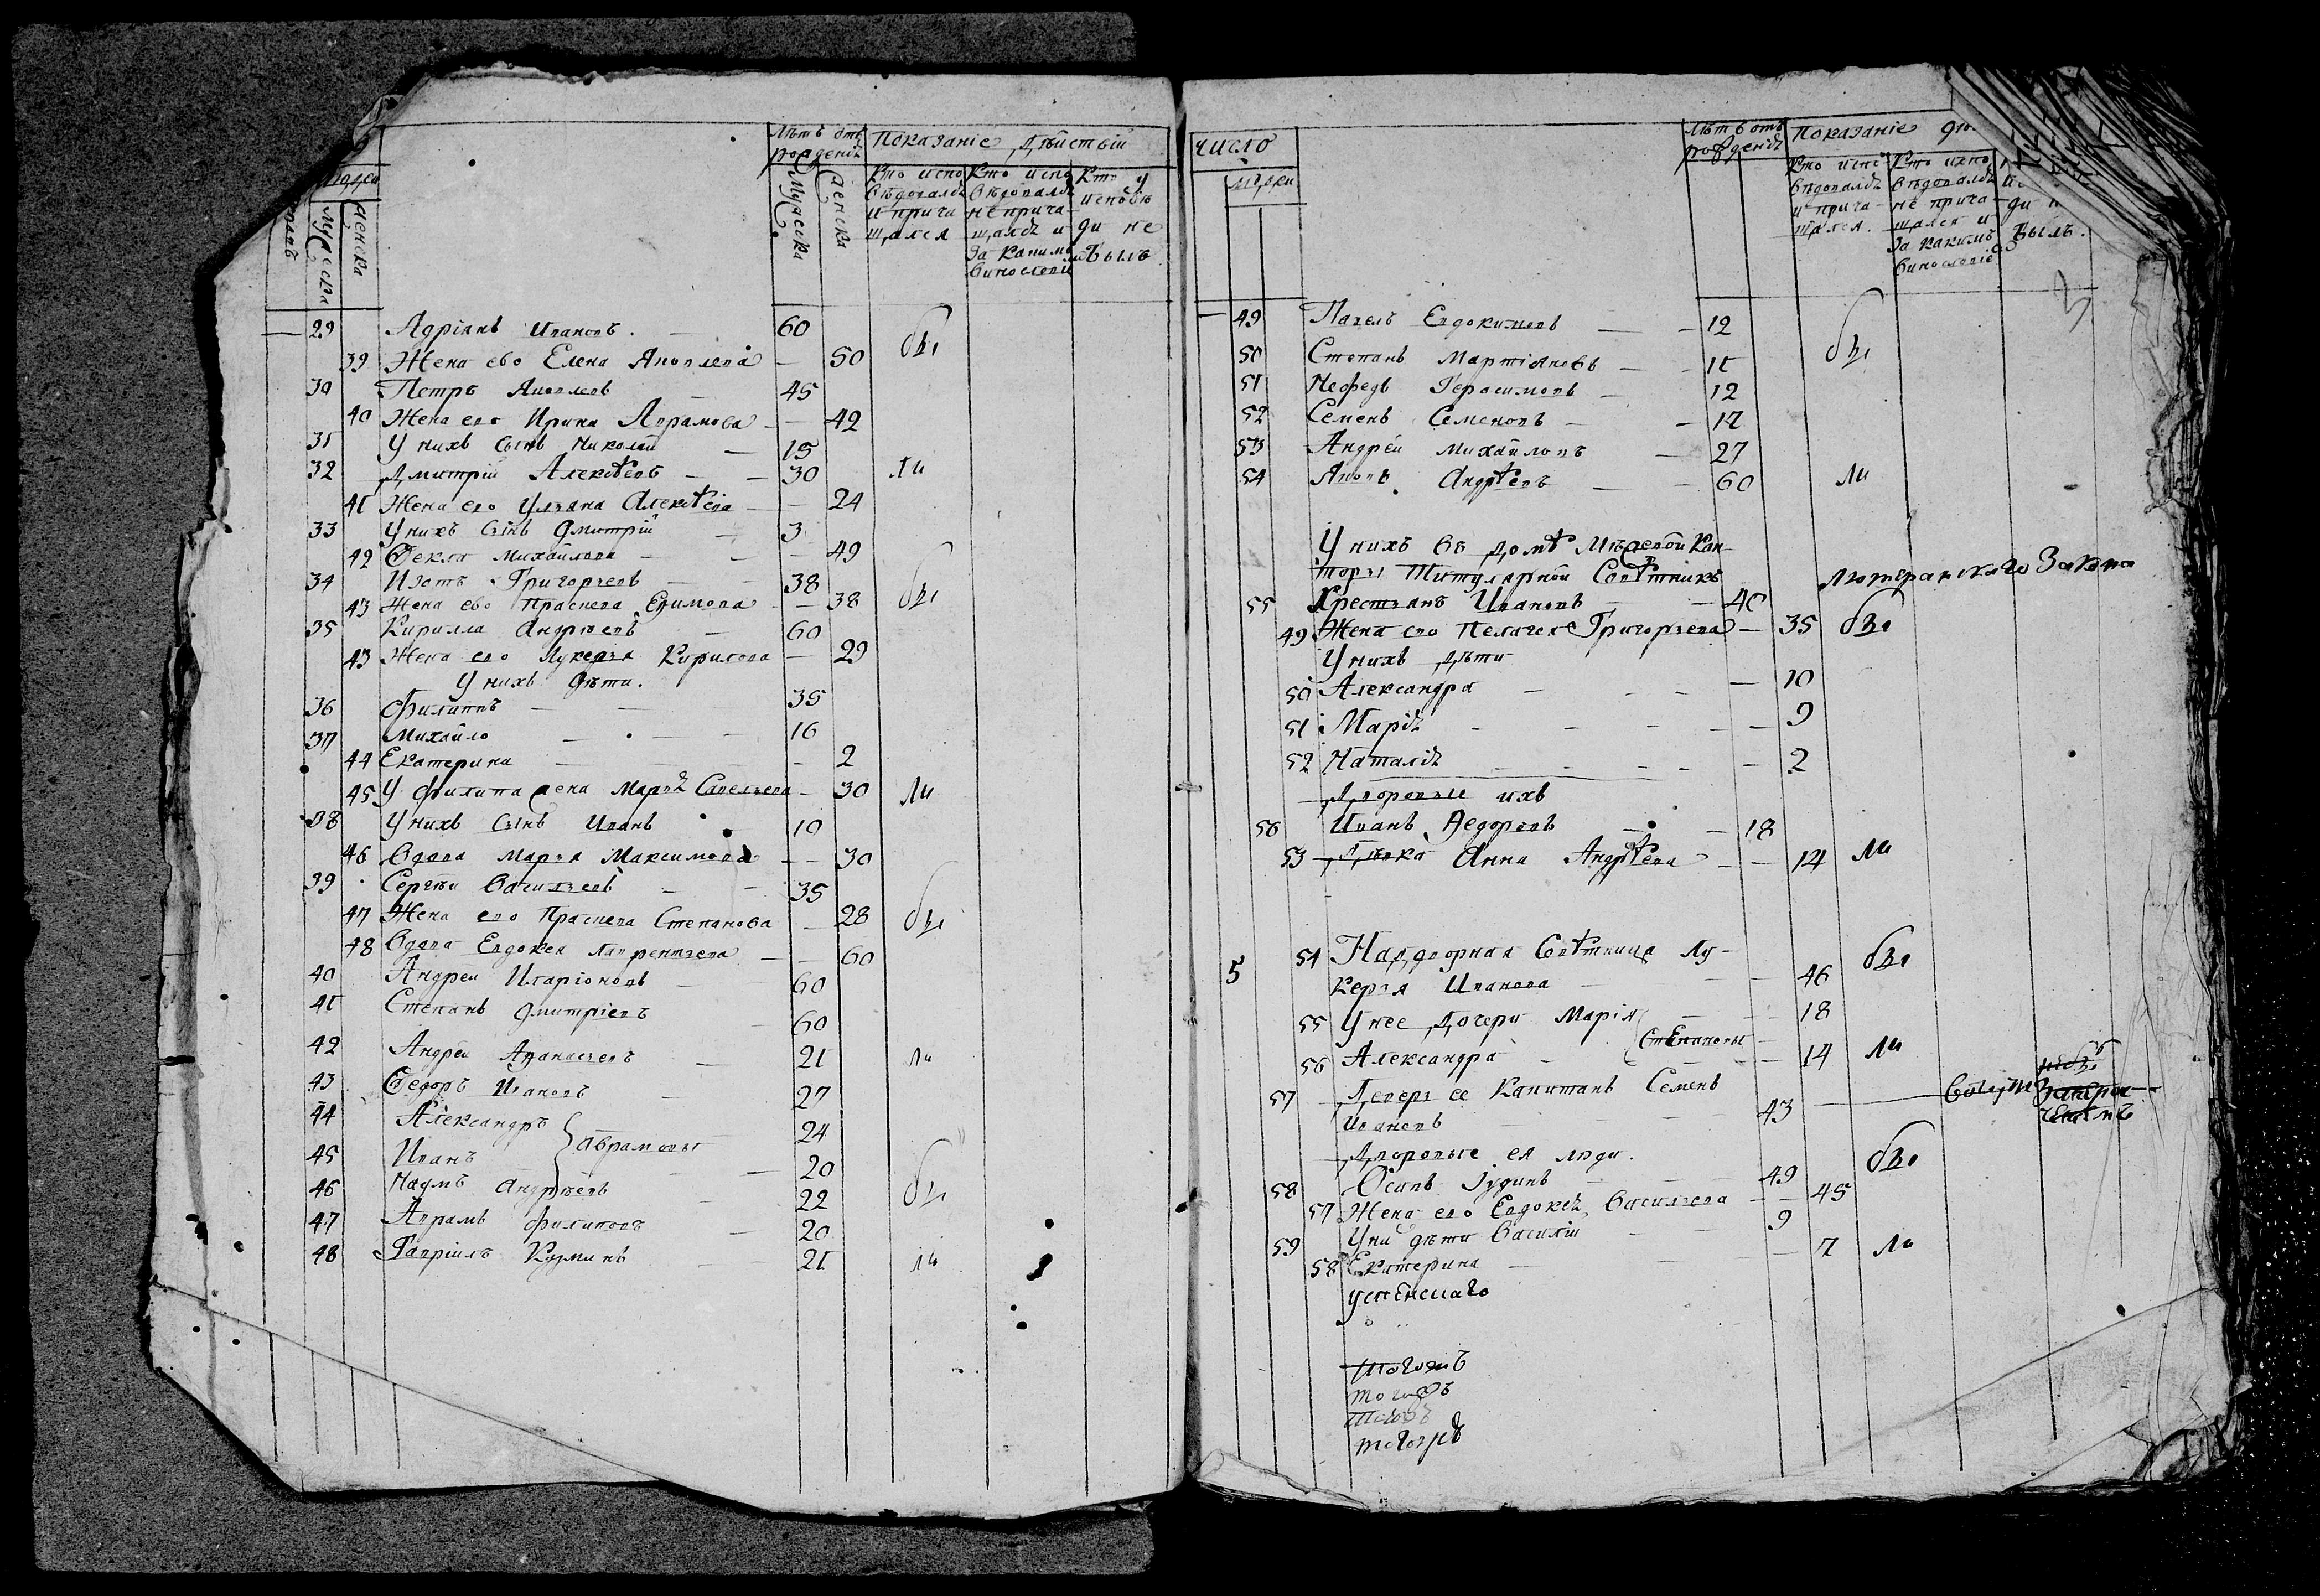 Лѣтъ отъ рожденія
Показаніе дѣйствій
людей
мужеска
женска
мужеска
женска
Кто испо
вѣдовался
и прича
щался
Кто испо
вѣдовался
не прича
щался и
за какимъ
винословіе
Кто у
исповѣ
ди не
былъ
29 Адріянъ Ивановъ 60 оба
39 Жена ево Елена Яковлева 50
30 Петръ Яковлевъ 45
40 Жена его Ирина Аврамова 42
31 У нихъ сынъ Николай 15
32 Дмитрій Алексѣевъ 30 ли
41 Жена его Ульяна Алексѣева 24
33 У нихъ сынъ Дмитрій 3
42 Ѳекла Михайлова 49
34 Изотъ Григорьевъ 38
43 Жена ево Прасковя Ефимова 38
35 Кирилла Андрѣевъ 60
43 Жена его Лукерья Кирилова 29
У нихъ дѣти.
36 Филиппъ 35
37 Михайло 16
44 Екатерина 2
45 У Филипа жена Марья Савельева 30 ли
38 У нихъ сынъ Иванъ 10
46 Вдова Марья Максимова 30
39 Сергѣй Васильевъ 35
47 Жена его Прасковя Степанова 28
48 Вдова Евдокея Лаврентьева 60
40 Андрей Иларіоновъ 60
41 Степанъ Дмитріевъ 60
42 Андрей Аѳанасьевъ 21 ли
43 Ѳедоръ Ивановъ 27
44 Александръ 24
Абрамовы
45 Иванъ 20
46 Наумъ Андрѣевъ 22
47 Аврамъ Филиповъ 20
48 Гавріилъ Кузминъ 21 ли
число
людей
Лѣтъ отъ
рожденія
Показаніе дѣ
Кто испо
вѣдовался
и прича-
щался.
Кто испо
вѣдовался
не прича-
щался и
за какимъ
винословіе
ди н
былъ.
49 Павелъ Евдокимовъ 12
50 Степанъ Мартіановъ 11
51 Нефедъ Герасимовъ 12
52 Семенъ Семеновъ 12
53 Андрей Михайловъ 27
54 Яковъ Андрѣевъ 60 ли
У нихъ въ домѣ Межевой Кан-
торы Титулярной Совѣтникъ
55 Крестьянъ Ивановъ 40 Лютеранскаго Закона
49 Жена его Пелагея Григорьева 35
У нихъ дѣти
50 Александра 10
51 Марія 9
52 Наталія 2
Дворовыи ихъ
56 Иванъ Ѳедоровъ 18
53 Дѣвка Анна Андрѣева 14 ли
5 54 Надворная Совѣтница Лу-
керья Иванова 46
55 У нее дочери Марія 18
Степановы
56 Александра 14 ли
57 Деверь ее Капитанъ Семенъ
Ивановъ 43
Дворовые ея люди.
58 Осипъ Іудинъ 49
57 Жена его Евдокея Васильева 45
59 У ни дѣти Василій 9
58 Екатерина 7 ли
успенскаго
тогожъ
тогожъ